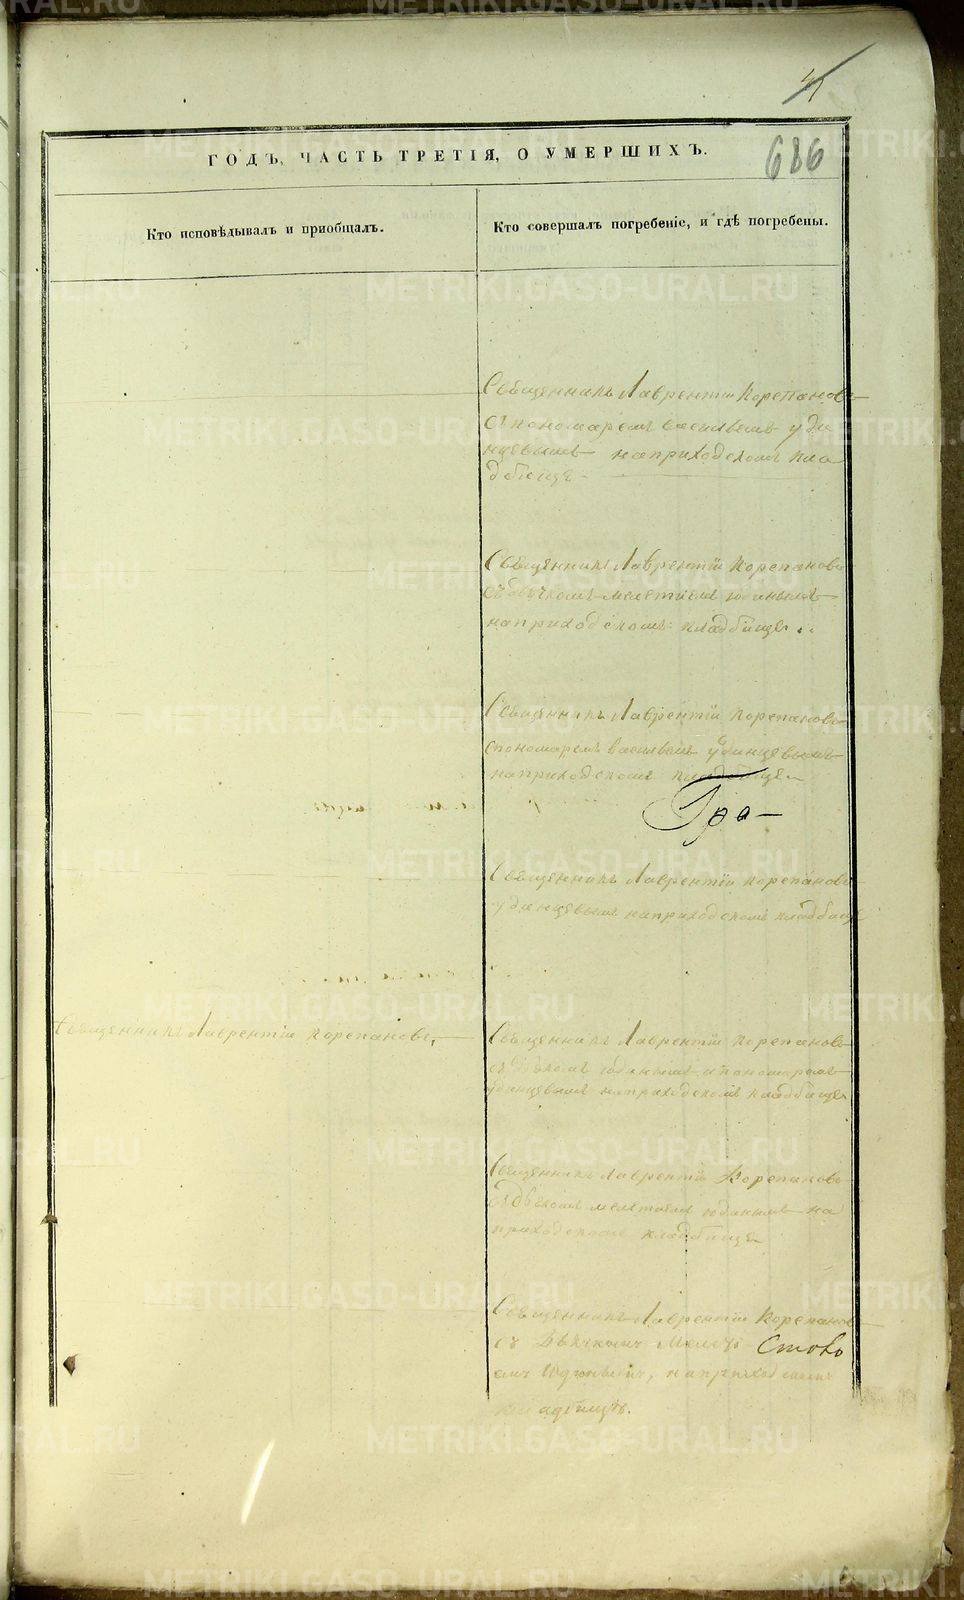 41
686
ГОДЪ, ЧАСТЬ ТРЕТІЯ, О УМЕРШИХЪ.
Кто исповѣдывалъ и приобщалъ.
Кто совершалъ погребеніе, и гдѣ погребены.
Священникъ Лаврентій Корепановъ
съ пономаремъ Васильемъ Уди
нцевымъ на приходскомъ кла
дбище
Священникъ Лаврентій Корепановъ
съ дьячкомъ Мелетіемъ Юдинымъ
на приходскомъ кладбище
Священникъ Лаврентій Корепановъ
с пономаремъ Васильемъ Удинцевымъ
на приходскомъ кладбище
Гра
Священникъ Лаврентій Корепановъ
Удинцевымъ на приходскомъ кладбище
Священникъ Лаврентій Корепановъ
Священникъ Лаврентій Корепановъ
съ дьячкомъ Юдинымъ и пономаремъ
Удинцевымъ на приходскомъ кладбище
Священникъ Лаврентій Корепановъ
съ дьячкомъ Мелетіемъ Юдинымъ на
приходскомъ кладбище
Священникъ Лаврентій Корепановъ
съ Дьячкомъ Мелеті
Стово
емъ Юдинымъ, на приходскомъ
кладбищѣ.
METRIKI.GASO-URAL.RU